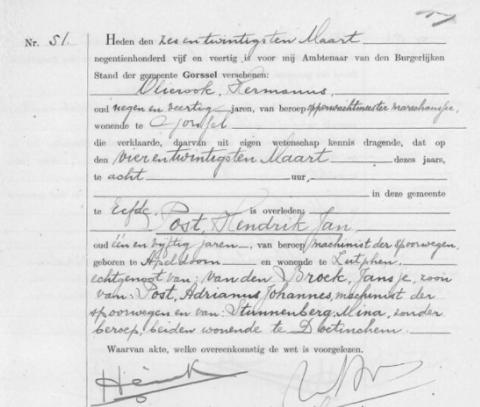 Nr. 51.
Heden den zesentwintigsten Maart
negentienhonderd vijf en veertig is voor mij Ambtenaar van den Burgerlijken
Stand der gemeente Gorssel verschenen:
Olierook, Hermanus,
oud negen en veertig jaren, van beroep opperwachtmeester marechaussee,
wonende te Gorssel
die verklaarde, daarvan uit eigen wetenschap kennis dragende, dat op
den vierentwintigsten Maart dezes jaars,
te acht uur,
in deze gemeente
te Eefde, is overleden:
Post, Hendrik Jan
oud één en vijftig jaren, van beroep machinist der spoorwegen,
geboren te Apeldoorn en wonende te Zutphen,
echtgenoot van: van den Broek, Jansje, zoon
van: Post, Adrianus Johannes, machinist der
spoorwegen en van Stunnenberg, Mina, zonder
beroep, beiden wonende te Doetinchem.
Waarvan akte, welke overeenkomstig de wet is voorgelezen.